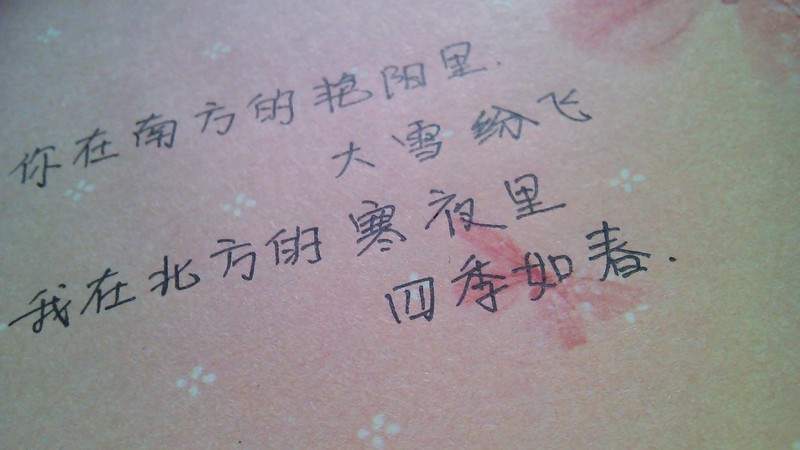 你在南方的艳阳里.
大雪纷飞
我在北方的寒夜里
四季如春.